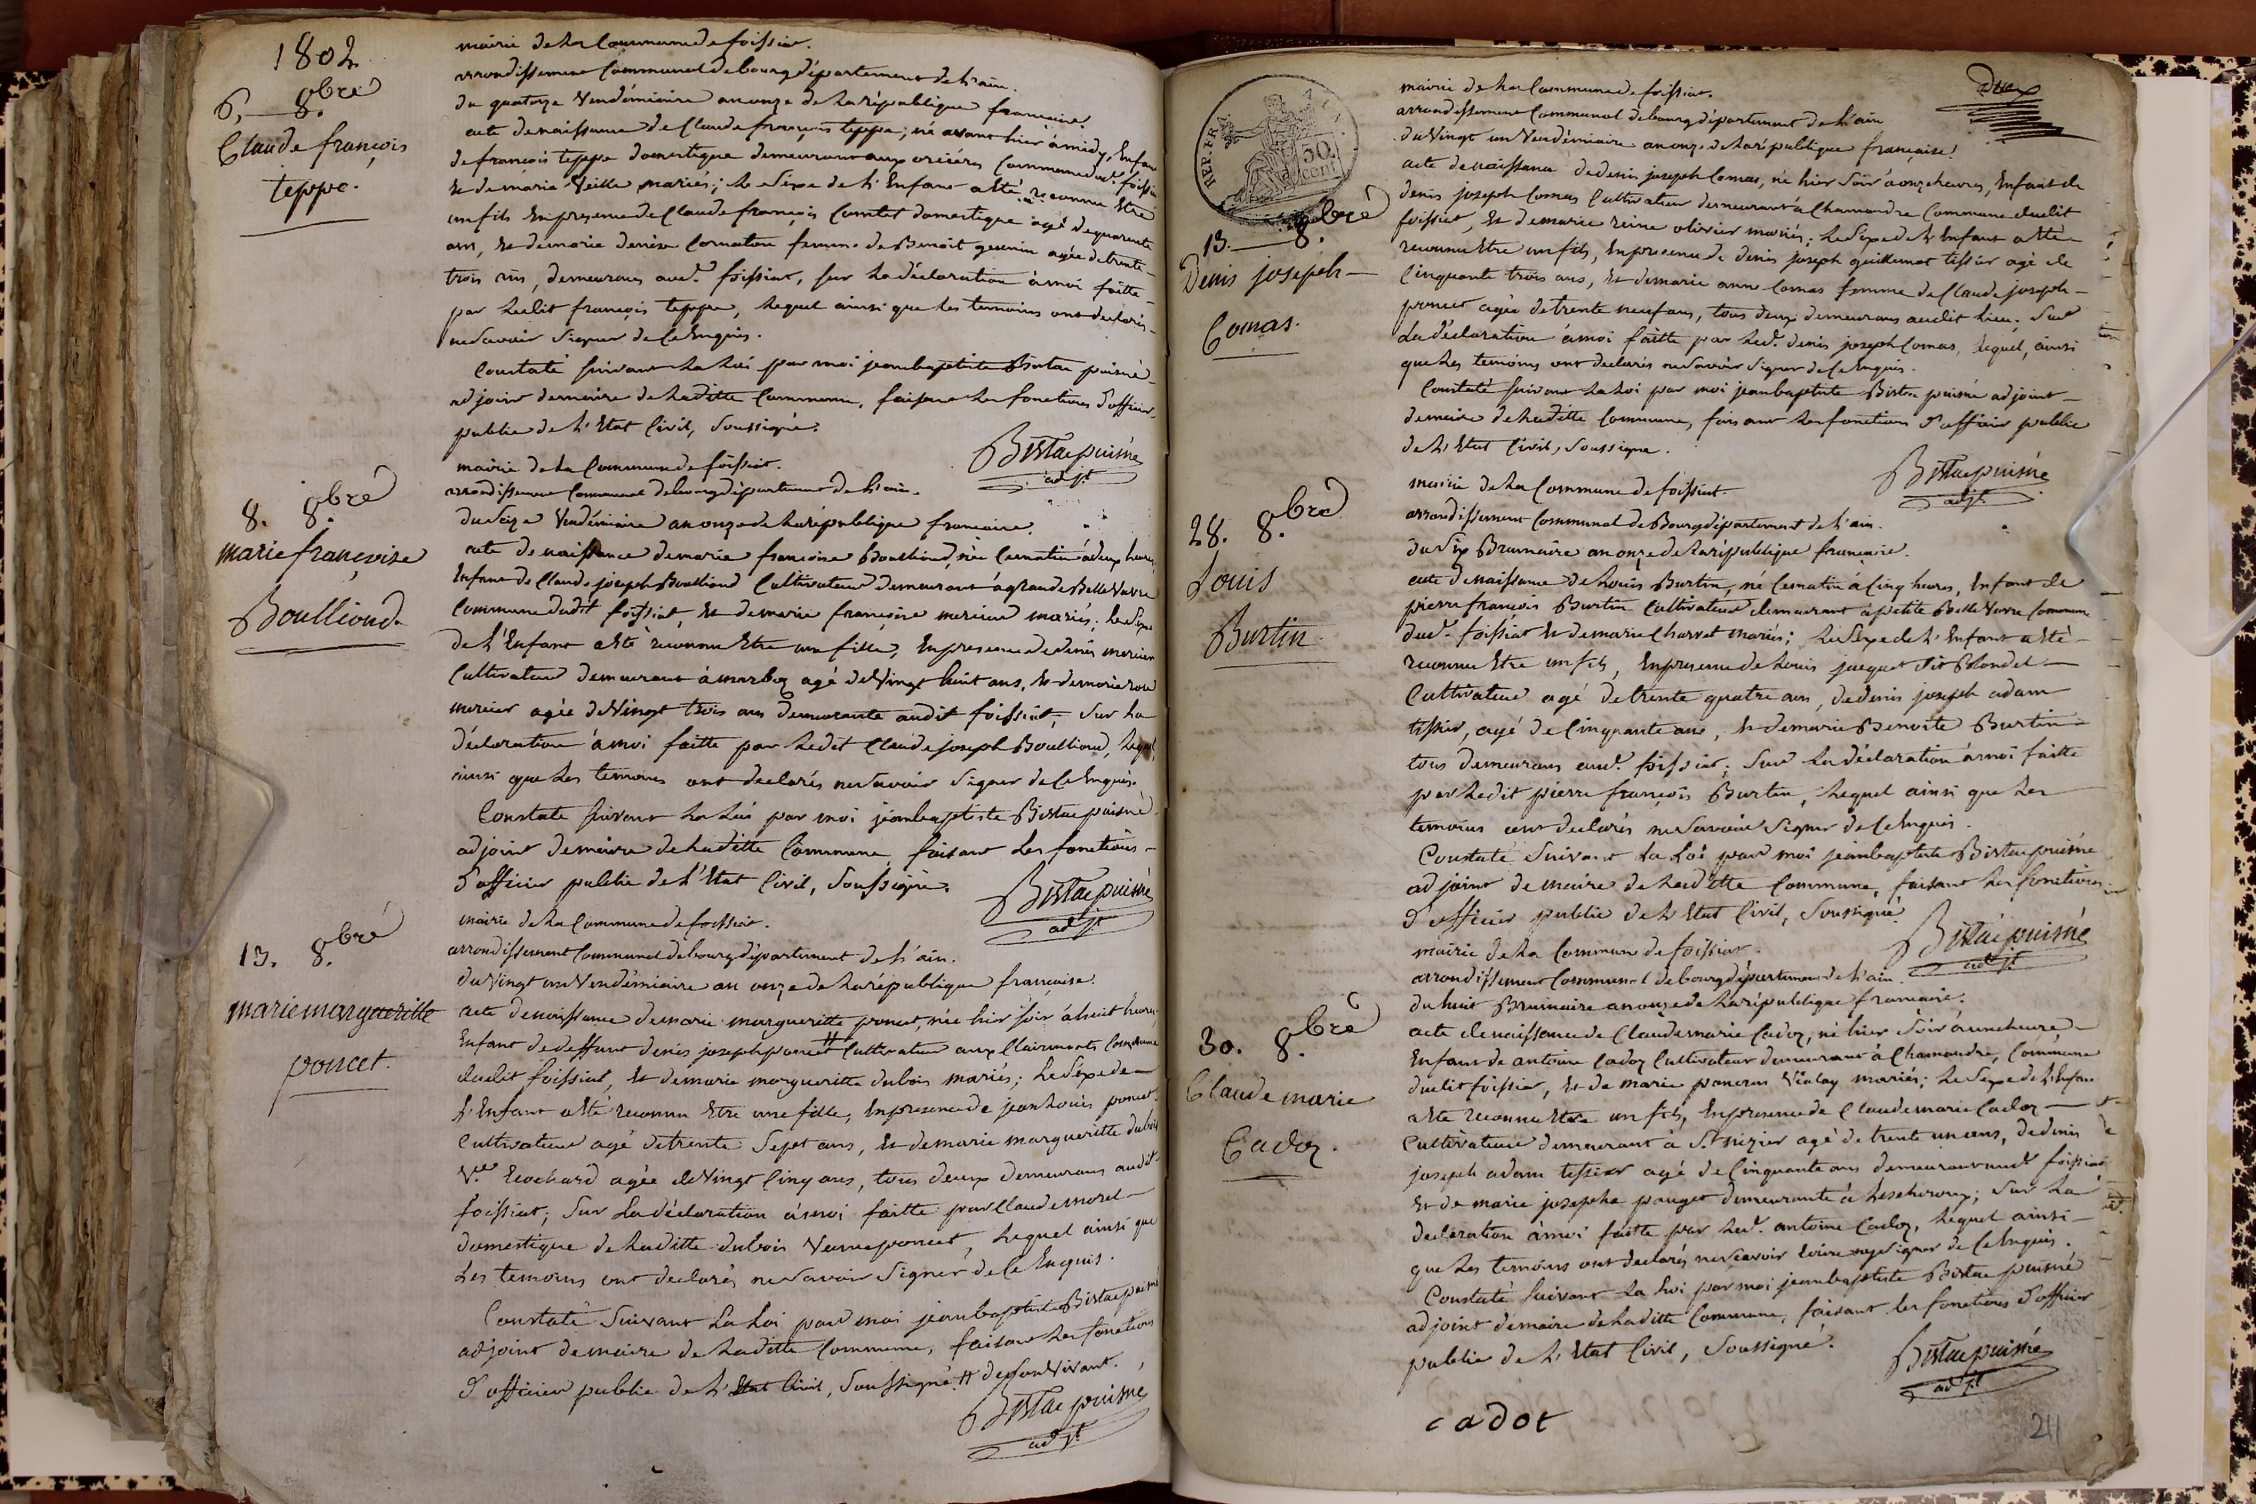 1802
6, 8.bre
Claude françois
teppe.
mairie de la Commune de foissiat.
arrondissement Communal de bourg département de l'ain.
du quatorze Vendémiaire an onze de la république française.
acte de naissance de Claude françois teppe; né avant hier à midy, Enfant
de françois teppe domestique demeurant aux Commune dud. foissiat
Et de marie Veille mariés; le Sexe de l'Enfant a Eté reconnu Etre
un fils En presence de Claude françois Comtet domestique agé de quarente
ans, Et de marie denise Cornaton femme de Benoit agée de trente
trois ans, demeurans aud. foissiat, sur la déclaration à moi faitte
par Ledit françois teppe, Lequel ainsi que les temoins ont declarés
ne Savoir Signer de Ce Enquis.
Constaté suivant La Loi par moi jean baptiste Bistac puisné
adjoint de maire de Laditte Commune, faisant Les fonctions d'officier
public de L'Etat Civil, Soussigné.
Bistac puisné
adjt.
8. 8.bre
marie françoise
Boulliond
mairie de la Commune de foissiat.
arrondissement Communal de bourg département de L'ain.
du Seize Vendémiaire an onze de La république française.
acte de naissance de marie françoise Boulliond, née Ce matin à deux heures,
Enfant de Claude joseph Boulliond Cultivateur demeurant à grande Belle Vavre
Commune dudit foissiat, Et de marie françoise mercier mariés; Le Sexe
de L'Enfant a Eté reconnu Etre une fille, En presence de denis mercier
Cultivateur demeurant à marboz agé de Vingt huit ans, Et de marie rose
mercier agée de Vingt trois ans demeurante audit foissiat, Sur La
déclaration à moi faitte par Ledit Claude joseph Boulliond, Lequel,
ainsi que Les temoins ont declarés ne Savoir Signer de Ce Enquis.
Constaté suivant La Loi par moi jean baptiste Bistac puisné
adjoint de maire de Laditte Commune faisant Les fonctions
d'officier public de L'Etat Civil, Soussigné.
Bistac puisné
adjt.
13. 8.bre
marie margueritte
poncet.
mairie de La Commune de foissiat.
arrondissement Communal de bourg département de L'ain.
du Vingt un Vendémiaire an onze de La république française.
acte de naissance de marie margueritte poncet, née hier soir à huit heures,
Enfant de deffunt denis joseph poncet # Cultivateur aux Clairmonts Commune
dudit foissiat, Et de marie margueritte dubois mariés; Le Sexe de
L'Enfant a Eté reconnu Etre une fille, En presence de jean Louis poncet
Cultivateur agé de trente Sept ans, Et de marie margueritte dubois
Ve. agée de Vingt Cinq ans, tous deux demeurans audit
foissiat; Sur La déclaration à moi faitte par Claude morel
domestique de Laditte dubois Veuve poncet, Lequel ainsi que
Les temoins ont declarés ne Savoir Signer de Ce Enquis.
Constaté Suivant La Loi par moi jean baptiste Bistac puisné
adjoint de maire de Laditte Commune, faisant Les fonctions
d'officier public de L'Etat Civil, Soussigné. # de son Vivant.
Bistac puisné
adjt.
deux
REP. FRA.
50 cent
13. 8.bre
Denis joseph
Comas.
mairie de La Commune de foissiat.
arrondissement Communal de bourg département de L'ain
du Vingt un Vendémiaire an onze de La république française.
acte de naissance de denis joseph Comas, né hier Soir à onze heures, Enfant de
denis joseph Comas Cultivateur demeurant à Chamandre Commune dudit
foissiat, Et de marie reine olivier mariés; Le Sexe de L'Enfant a Eté
reconnu Etre un fils, En presence de denis joseph guillemot tissier agé de
Cinquante trois ans, Et de marie anne Comas femme de Claude joseph
poncet agée de trente neuf ans, tous deux demeurans audit Lieu; Sur
La déclaration à moi faitte par Led. denis joseph Comas, Lequel, ainsi
que Les temoins ont declarés ne Savoir Signer de Ce Enquis.
Constaté Suivant La Loi par moi jean baptiste Bistac puisné adjoint
de maire de Laditte Commune, faisant Les fonctions d'officier public
de L'Etat Civil, Soussigné.
Bistac puisné
adjt.
28. 8.bre
Louis
Burtin
mairie de La Commune de foissiat.
arrondissement Communal de Bourg département de L'ain.
du Six Brumaire an onze de La république française.
acte de naissance de Louis Burtin, né Ce matin à Cinq heures, Enfant de
pierre françois Burtin Cultivateur demeurant à petite Belle Vavre Commune
dud. foissiat Et de marie Charvet mariés; Le Sexe de L'Enfant a Eté
reconnu Etre un fils, En presence de Louis jacquet dit Blondel
Cultivateur agé de trente quatre ans, de denis joseph adam
tissier, agé de Cinquante ans, Et de marie Benoite Burtin
tous demeurans aud. foissiat; Sur La déclaration à moi faitte
par Ledit pierre françois Burtin, Lequel ainsi que Les
temoins ont declarés ne Savoir Signer de Ce Enquis.
Constaté Suivant La Loi par moi jean baptiste Bistac puisné
adjoint de maire de Laditte Commune, faisant Les fonctions
d'officier public de L'Etat Civil, Soussigné.
Bistac puisné
adjt.
30. 8.bre
Claude marie
Cadoz.
mairie de La Commune de foissiat.
arrondissement Communal de bourg département de L'ain
du huit Brumaire an onze de La république française.
acte de naissance de Claude marie Cadoz, né hier Soir à une heure
Enfant de antoine Cadoz Cultivateur demeurant à Chamandre, Commune
dudit foissiat, Et de marie Vialay mariés; Le Sexe de L'Enfant
a Eté reconnu Etre un fils, En presence de Claude marie Cadoz
Cultivateur demeurant à St. nizier agé de trente un ans, de denis
joseph adam tissier agé de Cinquante ans demeurant aud. foissiat
Et de marie josephe pauget demeurante à Lescheroux; Sur La
declaration à moi faitte par Led. antoine Cadoz, Lequel ainsi
que Les temoins ont declarés ne Savoir Ecrire ny Signer de Ce Enquis.
Constaté Suivant La Loi par moi jean baptiste Bistac puisné
adjoint de maire de Laditte Commune, faisant les fonctions d'officier
public de L'Etat Civil, Soussigné.
Bistac puisné
adjt.
cadot
211